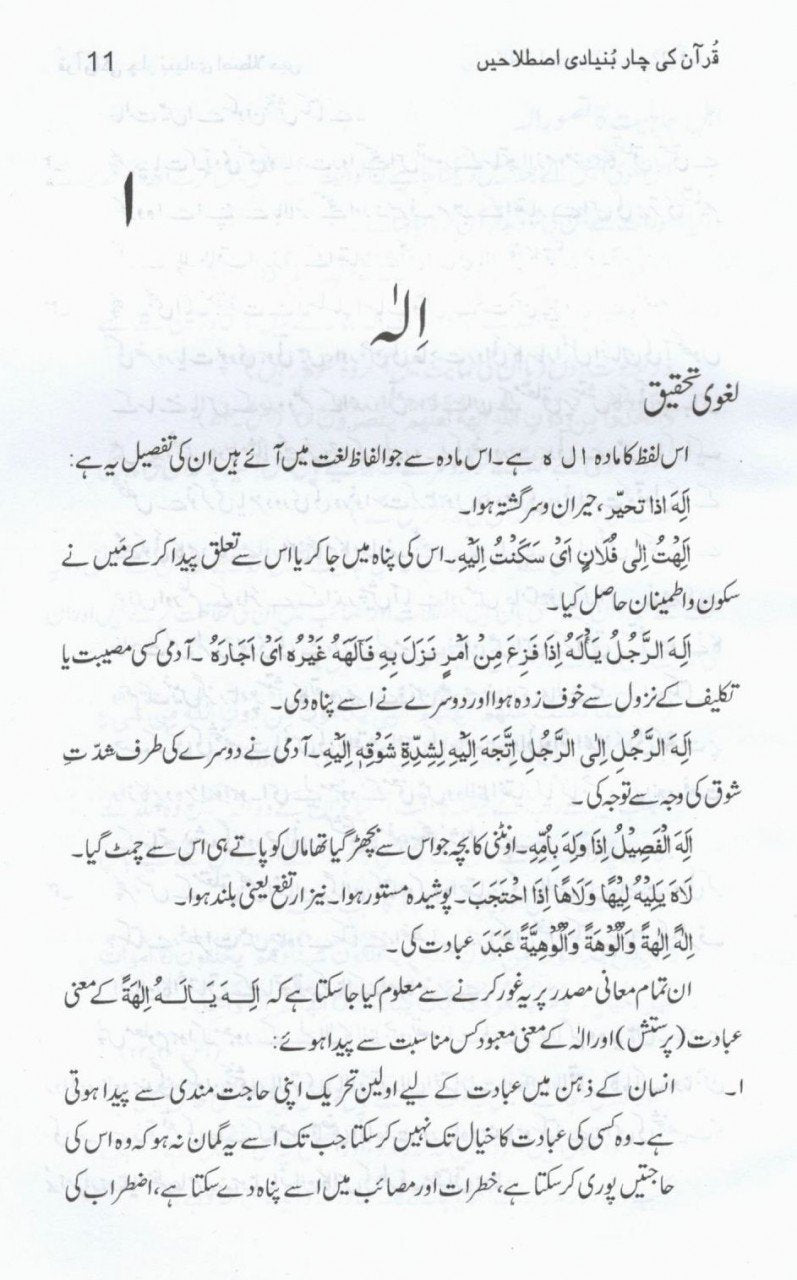 قُرآن کی چار بُنیادی اصطلاحیں 11
۱
اِلٰہ
لغوی تحقیق
اس لفظ کا مادہ ا ل ہ ہے۔ اس مادہ سے جو الفاظ لغت میں آئے ہیں ان کی تفصیل یہ ہے:
اَلِهَ اذا تحيّر، حیران و سرگشتہ ہوا۔
اَلِهْتُ اِلٰى فُلَانٍ اَىْ سَكَنْتُ اِلَيْهِ۔ اس کی پناہ میں جا کر یا اس سے تعلق پیدا کر کے مَیں نے
سکون و اطمینان حاصل کیا۔
اَلِهَ الرَّجُلُ يَأْلَهُ اِذَا فَزِعَ مِنْ اَمْرٍ نَزَلَ بِهِ فَالَهَهُ غَيْرُهُ اَىْ اَجَارَهُ۔ آدمی کسی مصیبت یا
تکلیف کے نزول سے خوف زدہ ہوا اور دوسرے نے اسے پناہ دی۔
اَلِهَ الرَّجُلِ اِلَى الرَّجُلِ اِتَّجَهَ اِلَيْهِ لِشِدَّةِ شَوْقِهٖ اِلَيْهِ۔ آدمی نے دوسرے کی طرف شدّتِ
شوق کی وجہ سے توجہ کی۔
اَلِهَ الْفَصِيْلُ اِذَا وَلِهَ بِأُمِّهِ۔ اونٹنی کا بچہ جو اس سے بچھڑ گیا تھا ماں کو پاتے ہی اس سے چمٹ گیا۔
لَاهَ يَلِيْهُ لِيْهًا وَلَاهًا اِذَا احْتَجَبَ۔ پوشیدہ مستور ہوا۔ نیز ارتفع یعنی بلند ہوا۔
اِلٰهً اِلٰهَةً وَاُلُوْهَةً وَاُلُوْهِيَّةً عَبَدَ عبادت کی۔
ان تمام معانی مصدر پر یہ غور کرنے سے معلوم کیا جا سکتا ہے کہ اَلِـهَ يَـالَـهُ اِلٰهَةً کے معنی
عبادت (پرستش) اور الٰہ کے معنی معبود کس مناسبت سے پیدا ہوئے:
۱۔ انسان کے ذہن میں عبادت کے لیے اولین تحریک اپنی حاجت مندی سے پیدا ہوتی
ہے۔ وہ کسی کی عبادت کا خیال تک نہیں کر سکتا جب تک اسے یہ گمان نہ ہو کہ وہ اس کی
حاجتیں پوری کر سکتا ہے، خطرات اور مصائب میں اسے پناہ دے سکتا ہے، اضطراب کی